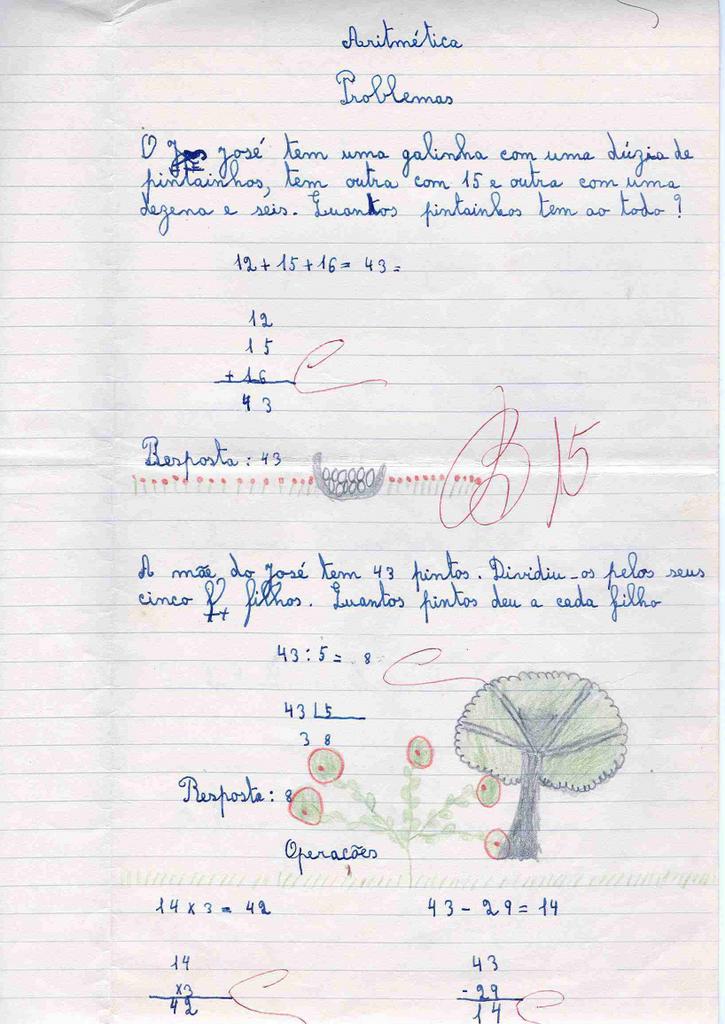 Aritmética
Problemas
O José tem uma galinha com uma dúzia de
pintainhos, tem outra com 15 e outra com uma
dezena e seis. Quantos pintainhos tem ao todo?
12 + 15 + 16 = 43 =
12
15
+ 16
43
Resposta: 43
B 15
A mãe do José tem 43 pintos. Dividiu-os pelos seus
cinco filhos. Quantos pintos deu a cada filho
43 : 5 = 8
43 5
3 8
Resposta: 8
Operacões
14 x 3 = 42 43 - 29 = 14
14 43
x3 - 29
42 14